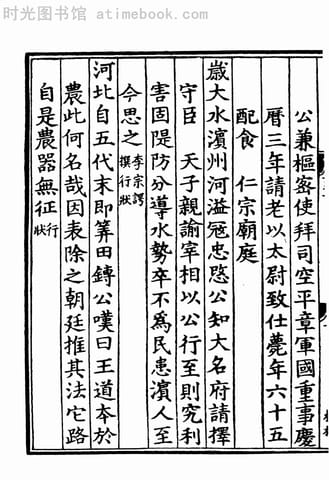 时光图书馆 - atimebook.com
公兼樞宻使拜司空平章軍國重事慶
曆三年請老以太尉致仕薨年六十五
配食 仁宗廟庭
歲大水濵州河溢冦忠愍公知大名府請擇
守臣 天子親諭宰相以公行至則究利
害固隄防分導水勢卒不為民患濵人至
今思之李宗諤撰行狀
河北自五代末即筭田鎛公嘆曰王道夲於
農此何名哉因表除之朝廷推其法它路
自是農器無征行狀